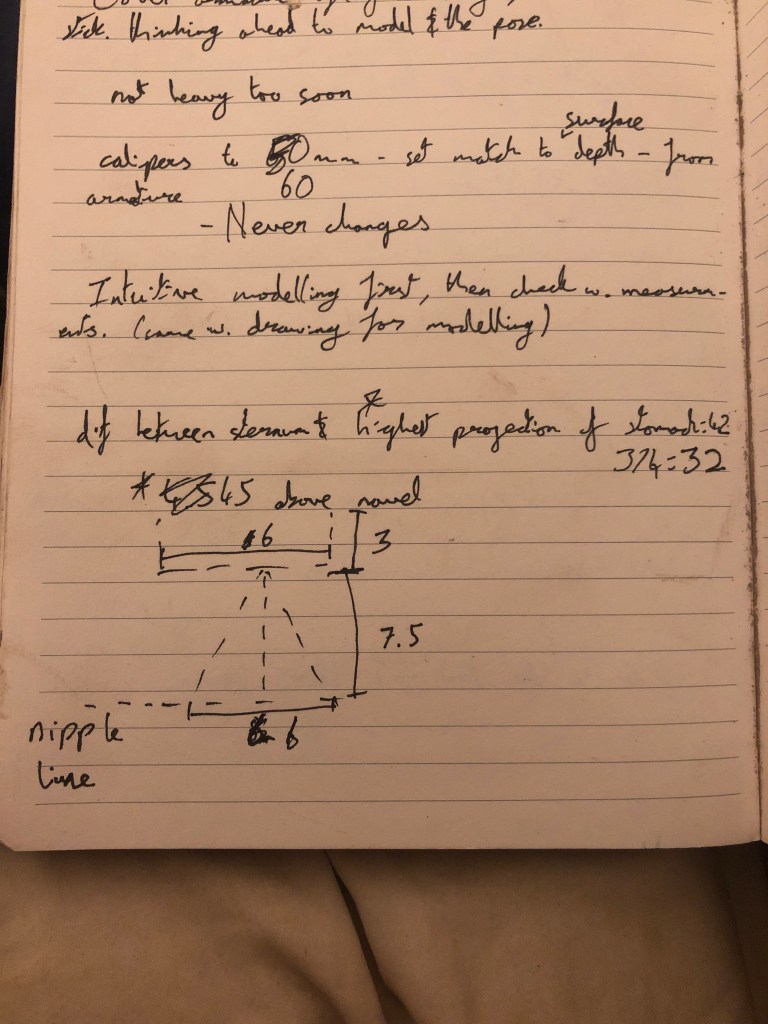 Cover
stick. thinking ahead to model & the pose.
not heavy too soon
surface
calipers to 50mm - set match to depth - from
armature 60
- Never changes
Intuitive modelling first, then check w. measurem-
ents. (same w. drawing for modelling)
*
dif between sternum & highest projection of stomach=42
3/4=32
* 45 above navel
16
3
7.5
nipple
6
line